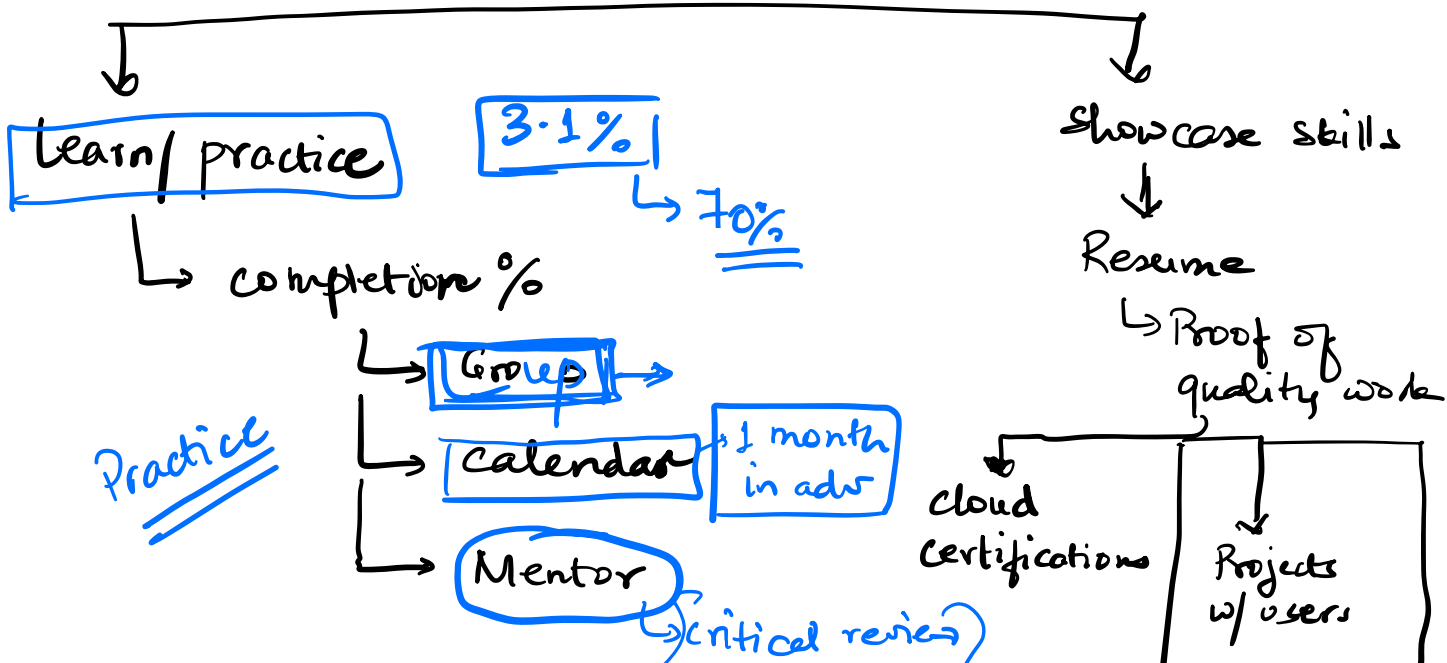 Learn/ practice
3.1%
70%
completion %
Group
Calendar
1 month
in adv
Mentor
(critical review)
Practice
Showcase skills
Resume
Proof of
quality work
cloud
certifications
Projects
w/ users